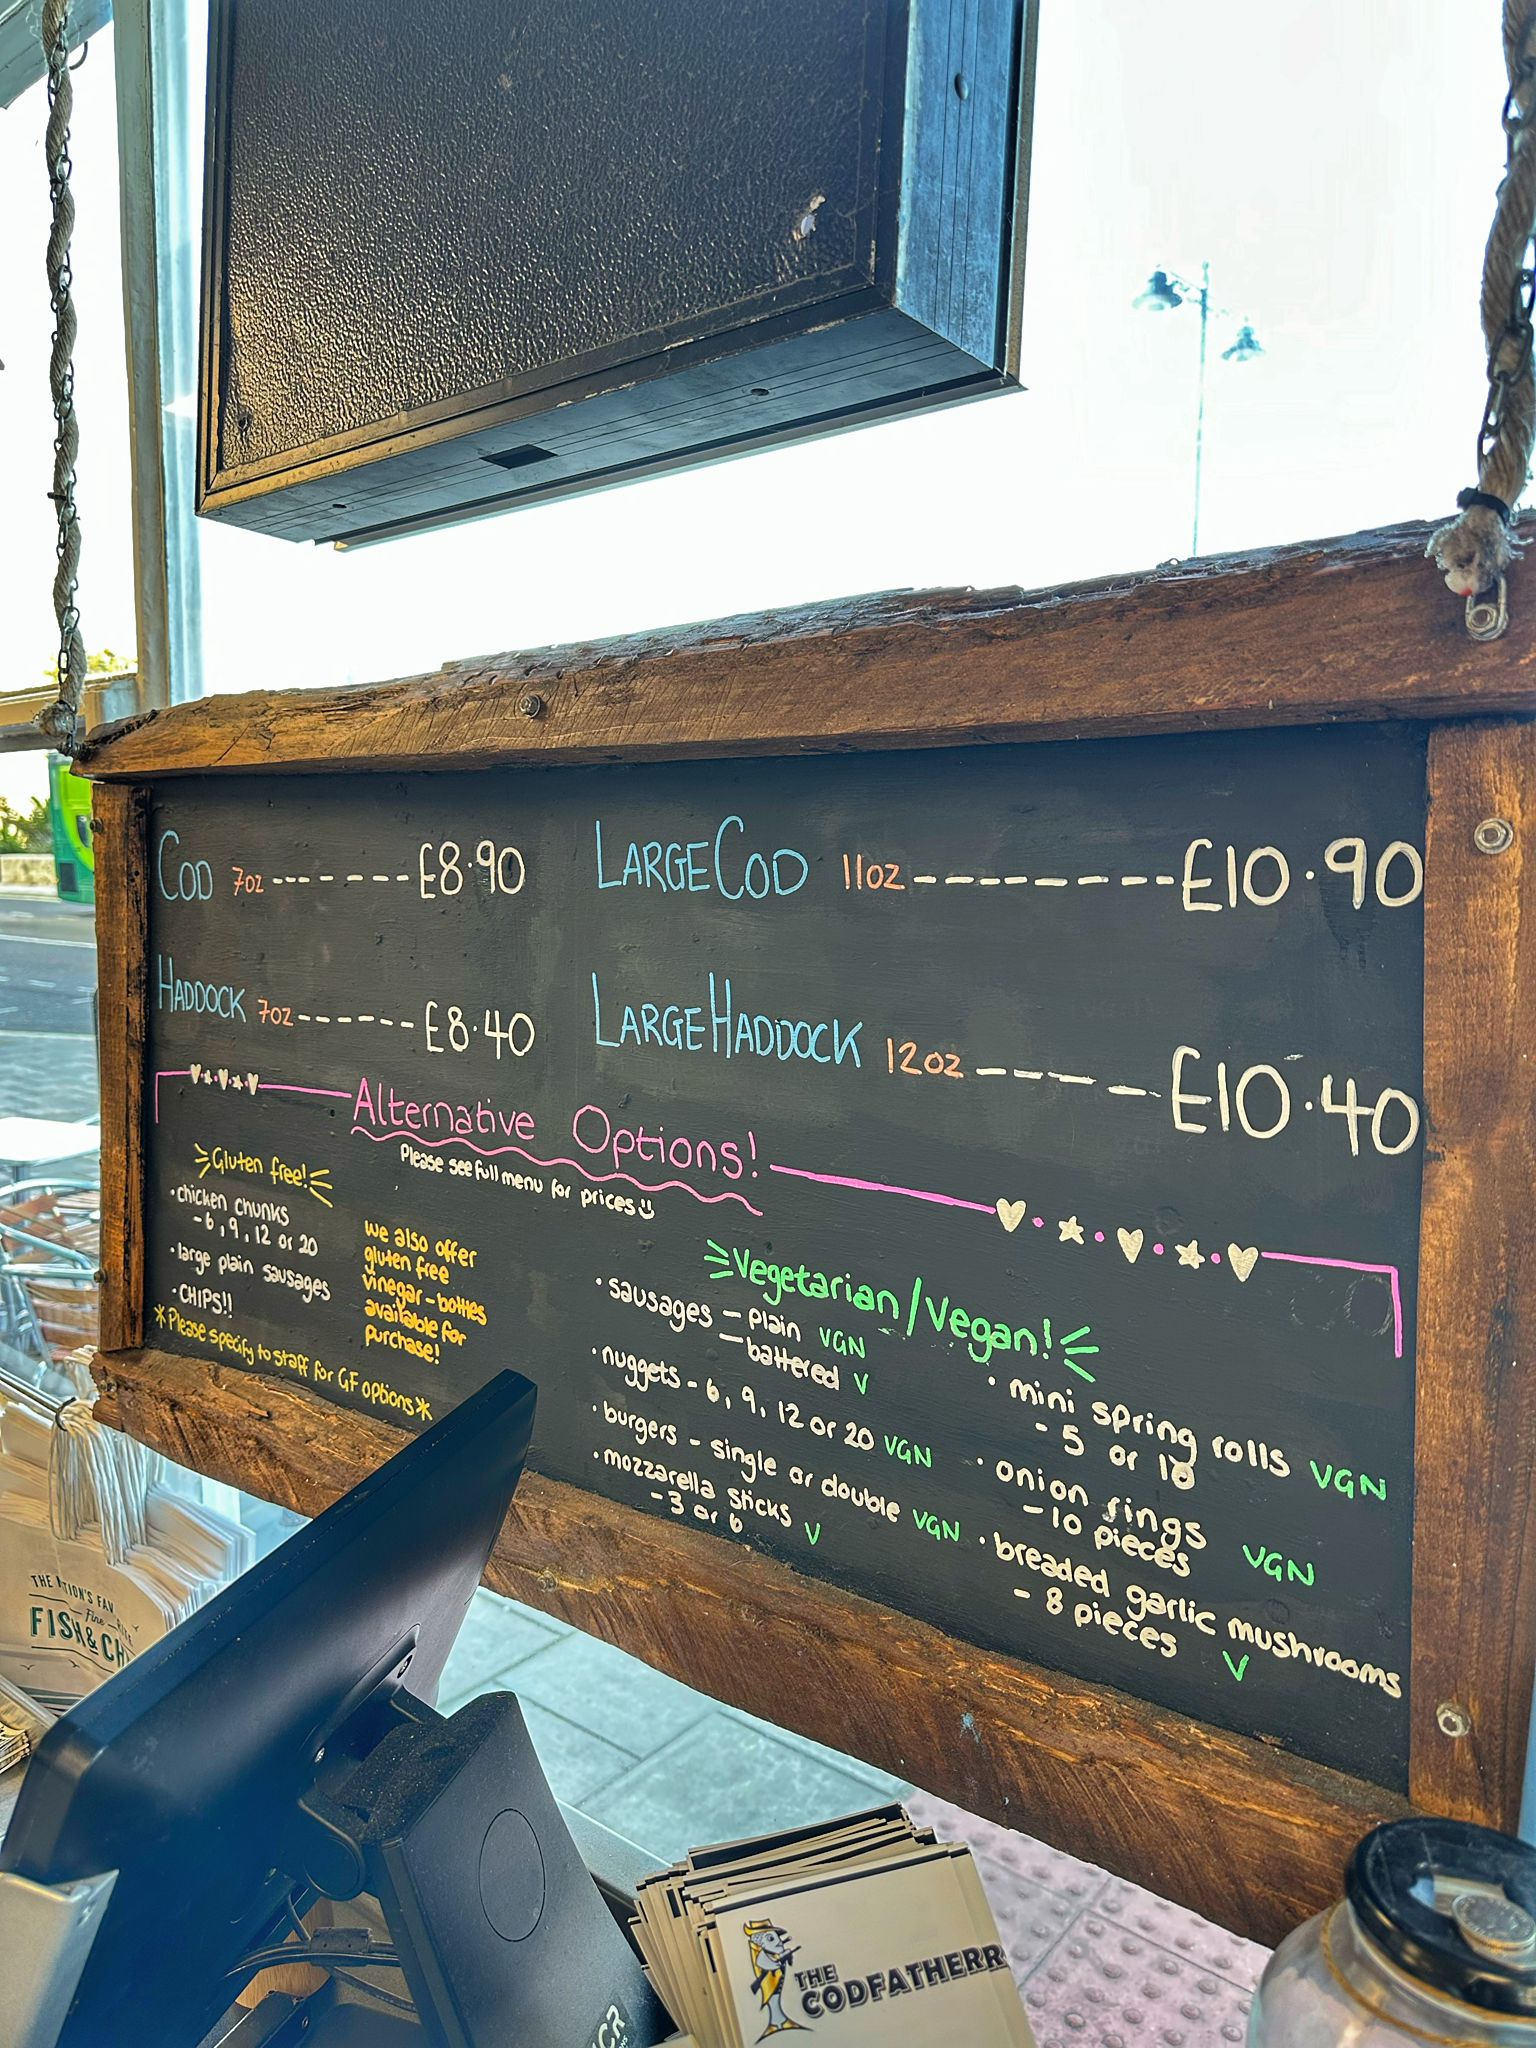 COD 7oz ------- £8.90
LARGE COD 11oz --------- £10.90
HADDOCK 7oz ------ £8.40
LARGE HADDOCK 12oz ---- £10.40
Alternative Options!
Please see full menu for prices
Gluten free!
• chicken chunks
- 6, 9, 12 or 20
• large plain sausages
• CHIPS!!
*Please specify to staff for GF options*
we also offer
gluten free
vinegar - bottles
available for
purchase!
Vegetarian/Vegan!
• sausages - plain VGN
- battered V
• nuggets - 6, 9, 12 or 20 VGN
• burgers - single or double VGN
• mozzarella sticks V
- 3 or 6
• mini spring rolls VGN
- 5 or 10
• onion rings VGN
- 10 pieces
• breaded garlic mushrooms
- 8 pieces V
THE
Fine
FISH &
THE
CODFATHERR
NCR